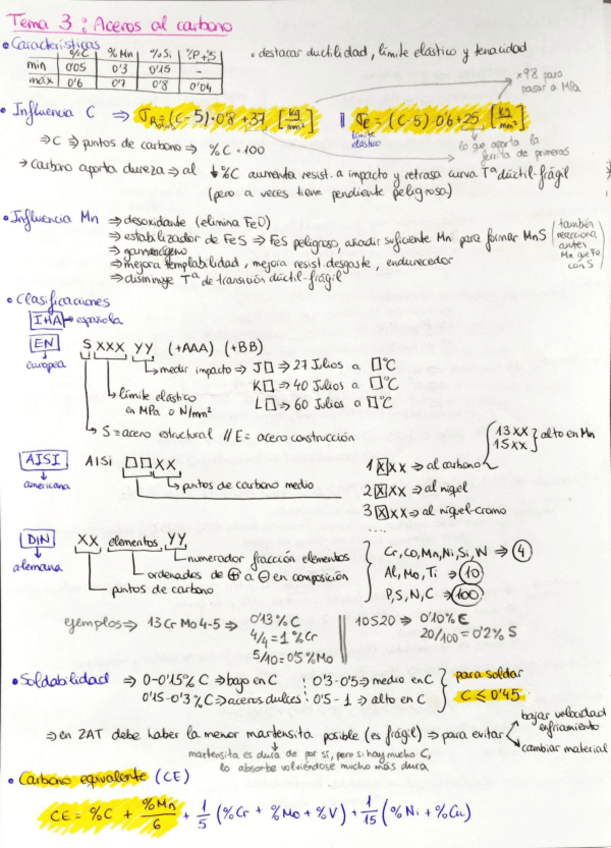 Tema 3: Aceros al carbono
• Características
%C | %Mn | %Si | %P+S
min | 0'05 | 0'3 | 0'15 | -
máx | 0'6 | 0'7 | 0'8 | 0'04
• destacar ductilidad, límite elástico y tenacidad
x9'8 para pasar a MPa
• Influencia C ⇒ σR = (C-5)·0'8+37 [kg/mm²] || σE = (C-5)·0'6+25 [kg/mm²]
límite elástico
lo que aporta la ferrita de primeras
⇒ C ⇒ puntos de carbono ⇒ %C·100
⇒ Carbono aporta dureza ⇒ al ↓%C aumenta resist. a impacto y retrasa curva Tª dúctil-frágil
(pero a veces tiene pendiente peligrosa)
• Influencia Mn ⇒ desoxidante (elimina FeO)
⇒ estabilizador de FeS ⇒ FeS peligroso, añadir suficiente Mn para formar MnS (también reacciona antes Mn que Fe con S)
⇒ gammágeno
⇒ mejora templabilidad, mejora resist. desgaste, endurecedor
⇒ disminuye Tª de transición dúctil-frágil
• Clasificaciones
IHA → española
EN
europea
S XXX YY (+AAA) (+BB)
medir impacto ⇒ J□ ⇒ 27 Julios a □ºC
K□ ⇒ 40 Julios a □ºC
L□ ⇒ 60 Julios a □ºC
límite elástico en MPa o N/mm²
S = acero estructural // E = acero construcción
AISI
americana
AISI □□XX
puntos de carbono medio
1XXX ⇒ al carbono
13XX
15XX } alto en Mn
2XXX ⇒ al níquel
3XXX ⇒ al níquel-cromo
....
DIN
alemana
XX elementos, YY
numerador fracción elementos
ordenados de ⊕ a ⊖ en composición
puntos de carbono
Cr, Co, Mn, Ni, Si, W ⇒ 4
Al, Mo, Ti ⇒ 10
P, S, N, C ⇒ 100
ejemplos ⇒ 13 Cr Mo 4-5 ⇒ 0'13% C
4/4 = 1% Cr
5/10 = 0'5% Mo
10S20 ⇒ 0'10% C
20/100 = 0'2% S
• Soldabilidad ⇒ 0-0'15% C ⇒ bajo en C
0'15-0'3% C ⇒ aceros dulces
0'3-0'5 ⇒ medio en C
0'5-1 ⇒ alto en C
para soldar
C ≤ 0'45
⇒ en ZAT debe haber la menor martensita posible (es frágil) ⇒ para evitar
bajar velocidad enfriamiento
cambiar material
martensita es dura de por sí, pero si hay mucho C,
lo absorbe volviéndose mucho más dura
• Carbono equivalente (CE)
CE = %C + %Mn/6 + 1/5 (%Cr + %Mo + %V) + 1/15 (%Ni + %Cu)